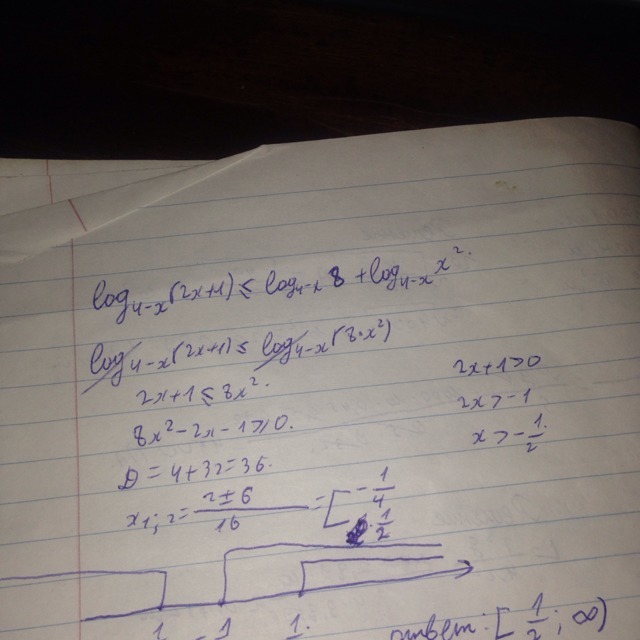 log₄₋ₓ(2x+1) ≤ log₄₋ₓ 8 + log₄₋ₓ x².
log₄₋ₓ(2x+1) ≤ log₄₋ₓ(8·x²)
2x+1 ≤ 8x².
8x²-2x-1≥0.
D = 4+32=36.
x₁;₂ = (2±6)/16 = [ -1/4
1/2
2x+1>0
2x>-1
x>-1/2
ответ: [1/2; ∞)